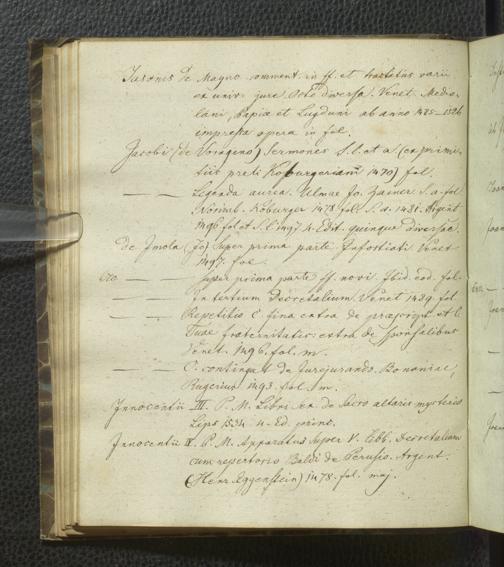 Jasonis de Magno comment. in ff. et tractatus varii
ex univ. jure Octo diversa. Venet. Medio-
lani, Papiae et Lugduni ab anno 1485–1526
impressa opera in fol.
Jacobi (de Voragine) Sermones S. l. et a. (ex primi-
tiis preli Koburgeriani 1470) fol.
— — Legenda aurea. Ulmae Jo. Zainer. S. a. fol.
Norimb. Koburger 1478 fol. S. l. 1481. Argent.
1496 fol. et S. l. 1497. 4. Edit. quinque diversa.
de Imola (Jo) Super prima parte Infortiati Venet.
1497. fol.
— — Super prima parte ff. novi. Ibid. eod. fol.
— — In tertium Decretalium. Venet 1489. fol.
— — Repetitio C. fina extra de praescript. et C.
Tuae fraternitatis: extra de sponsalibus
Venet. 1496. fol. m.
— — C. contingit de Jurejurando. Bononiae,
Rugerius 1493. fol. m.
Innocentii III. P. M. Libri sex de sacro altaris mysterio
Lips. 1534. 4. Ed. princ.
Innocentii P. M. Apparatus super V. Libb. Decretalium
cum repertorio Baldi de Perusio. Argent.
(Henr. Eggenstein) 1478. fol. maj.